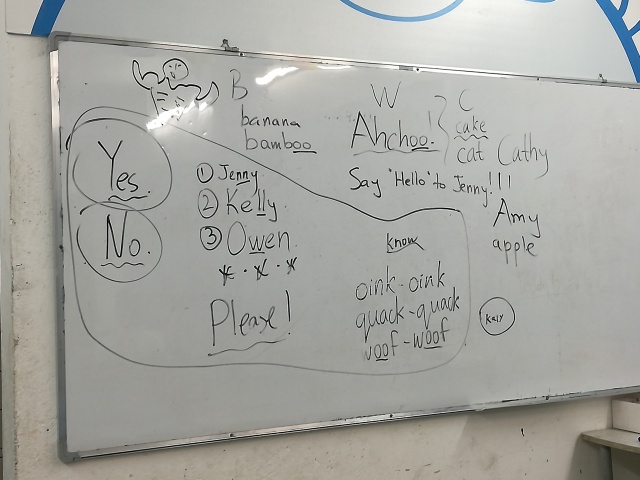 B
banana
bamboo
W
Ahchoo!
C
cake
cat Cathy
Say "Hello" to Jenny!!!
Amy
apple
Yes.
No.
① Jenny
② Kelly
③ Owen
Please!
know
oink-oink
quack-quack
woof-woof